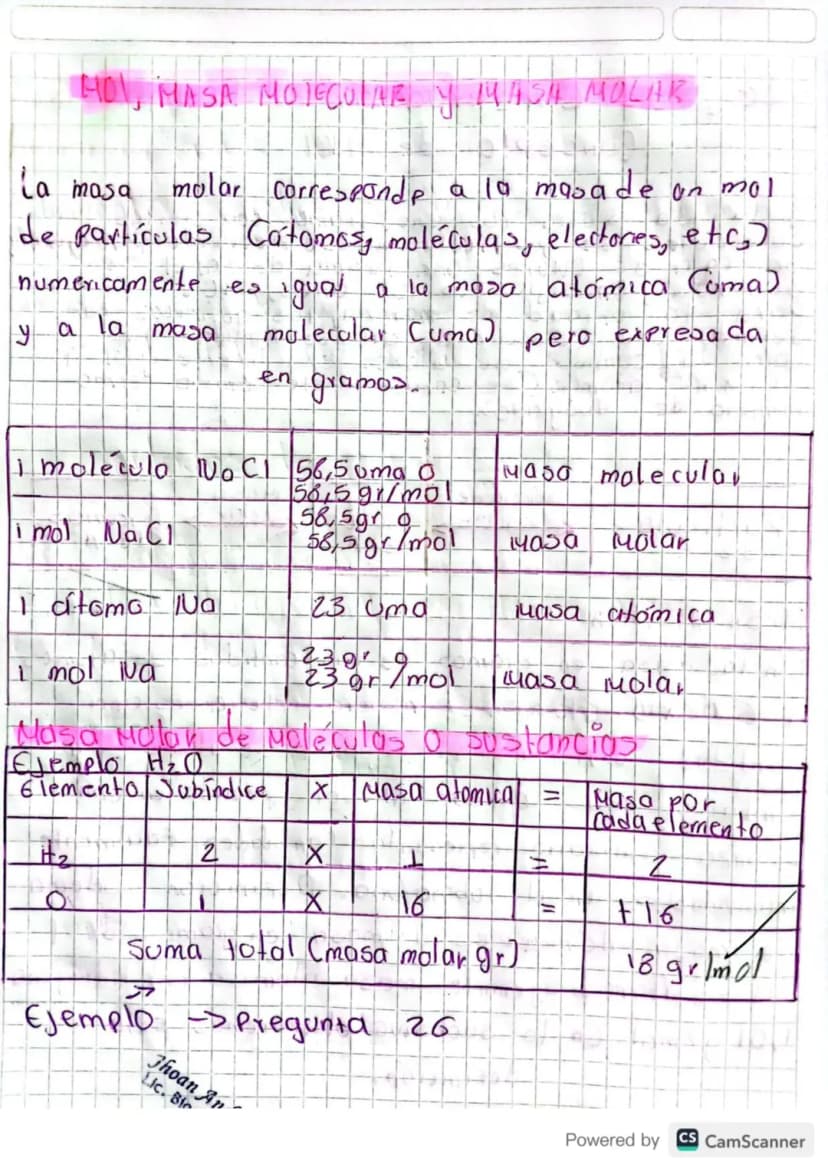 MOl, MASA MOlECUlAR y MASA MOLAR
La masa molar corresponde a la masa de un mol
de partículas (átomos, moléculas, electones, etc,)
numericamente es igual a la masa atómica (uma)
y a la masa molecular (uma) pero expresada
en gramos.
1 molécula NaCl 56,5 uma o 58,5 gr/mol Masa molecular
1 mol NaCl 58,5gr o 58,5 gr/mol Masa Molar
1 átomo Na 23 uma Masa atómica
1 mol Na 23 gr o 23 gr/mol Masa Molar
Masa Molar de Moléculas o sustancias
Ejemplo H2O
Elemento Subíndice X Masa atomica = Masa por cada elemento
H2 2 X 1 = 2
O 1 X 16 = +16
Suma total (masa molar gr) 18 gr/mol
Ejemplo -> Pregunta 26
Jhoan
Lic.
Powered by CS CamScanner